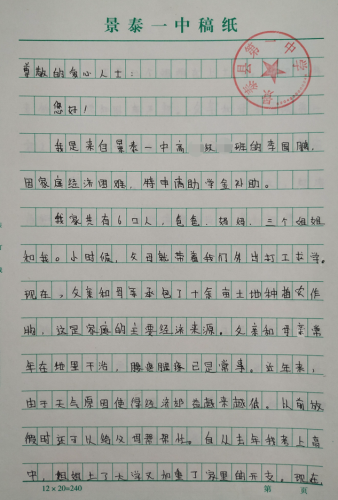 景泰一中稿纸
尊敬的爱心人士:
您好!
我是来自景泰一中高 级 班的李国鹏,
因家庭经济困难,特申请助学金补助。
我家共有6口人,爸爸、妈妈、三个姐姐
和我。小时候,父母就带着我们外出打工上学。
现在,父亲和母亲承包了十余亩土地种着农作
物,这是家庭的主要经济来源。父亲和母亲常
年在地里干活,腰酸腿疼已是常事。近年来,
由于天气原因使得经济效益越来越低。从前放
假时还可以给父母帮帮忙。自从去年我考上高
中,姐姐上了大学又加重了家里的开支。现在,
12×20=240 第 页